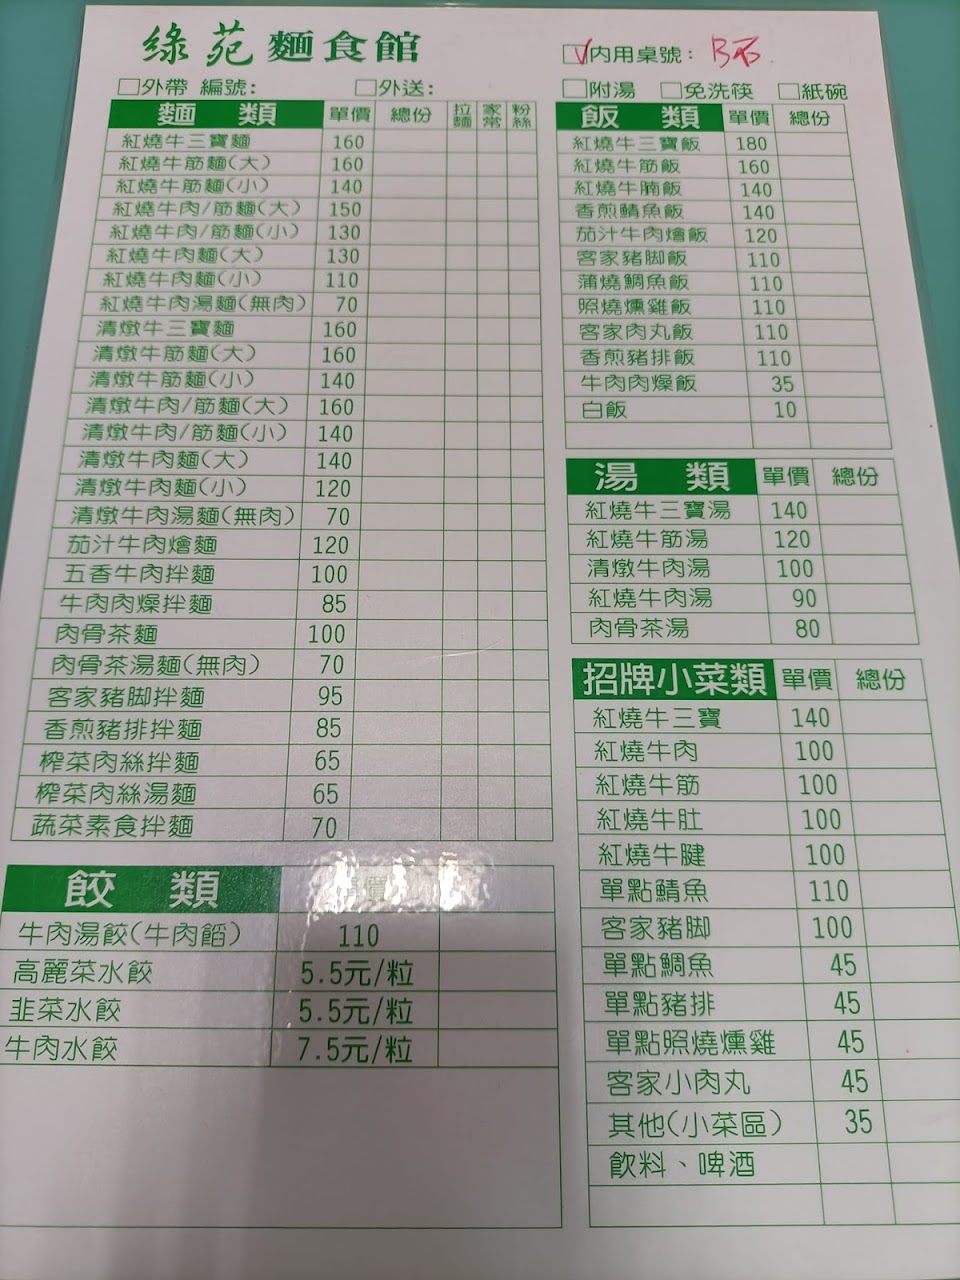 綠苑 麵食館
☑內用桌號：
□外帶 編號： □外送：
□附湯 □免洗筷 □紙碗
麵 類 單價 總份 拉麵 家常 粉絲
紅燒牛三寶麵 160
紅燒牛筋麵(大) 160
紅燒牛筋麵(小) 140
紅燒牛肉/筋麵(大) 150
紅燒牛肉/筋麵(小) 130
紅燒牛肉麵(大) 130
紅燒牛肉麵(小) 110
紅燒牛肉湯麵(無肉) 70
清燉牛三寶麵 160
清燉牛筋麵(大) 160
清燉牛筋麵(小) 140
清燉牛肉/筋麵(大) 160
清燉牛肉/筋麵(小) 140
清燉牛肉麵(大) 140
清燉牛肉麵(小) 120
清燉牛肉湯麵(無肉) 70
茄汁牛肉燴麵 120
五香牛肉拌麵 100
牛肉肉燥拌麵 85
肉骨茶麵 100
肉骨茶湯麵(無肉) 70
客家豬脚拌麵 95
香煎豬排拌麵 85
榨菜肉絲拌麵 65
榨菜肉絲湯麵 65
蔬菜素食拌麵 70
餃 類 單價
牛肉湯餃(牛肉餡) 110
高麗菜水餃 5.5元/粒
韭菜水餃 5.5元/粒
牛肉水餃 7.5元/粒
飯 類 單價 總份
紅燒牛三寶飯 180
紅燒牛筋飯 160
紅燒牛腩飯 140
香煎鯖魚飯 140
茄汁牛肉燴飯 120
客家豬脚飯 110
蒲燒鯛魚飯 110
照燒燻雞飯 110
客家肉丸飯 110
香煎豬排飯 110
牛肉肉燥飯 35
白飯 10
湯 類 單價 總份
紅燒牛三寶湯 140
紅燒牛筋湯 120
清燉牛肉湯 100
紅燒牛肉湯 90
肉骨茶湯 80
招牌小菜類 單價 總份
紅燒牛三寶 140
紅燒牛肉 100
紅燒牛筋 100
紅燒牛肚 100
紅燒牛腱 100
單點鯖魚 110
客家豬脚 100
單點鯛魚 45
單點豬排 45
單點照燒燻雞 45
客家小肉丸 45
其他(小菜區) 35
飲料、啤酒